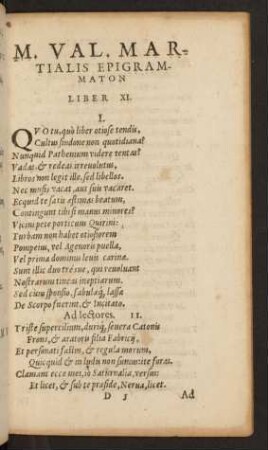 M. VAL. MAR-
TIALIS EPIGRAM-
MATON
LIBER XI.
I.
QVO tu, quò liber otiose tendis,
Cultus sindone non quotidiana?
Nunquid Parthenium videre tentas?
Vadas, & redeas irreuolutus,
Libros non legit ille, sed libellos.
Nec musis vacat, aut suis vacaret.
Ecquid te satis æstimas beatum,
Contingunt tibi si manus minores?
Vicini pete porticum Quirini:
Turbam non habet otiosiorem
Pompeius, vel Agenoris puella,
Vel primæ dominus leuis carinæ.
Sunt illic duo tresue, qui reuoluant
Nostrarum tineas ineptiarum.
Sed cùm sponsio, fabulæq́; lassæ
De Scorpo fuerint, & Incitato.
Ad lectores. II.
Triste supercilium, duriq́; seuera Catonis
Frons, & aratoris filia Fabricij,
Et personati fastus, & regula morum,
Quicquid & in tenebris non sumus, ite foras.
Clamant ecce mei, io Saturnalia, versus:
Et licet, & sub te præside, Nerua, licet.
D 3 Ad